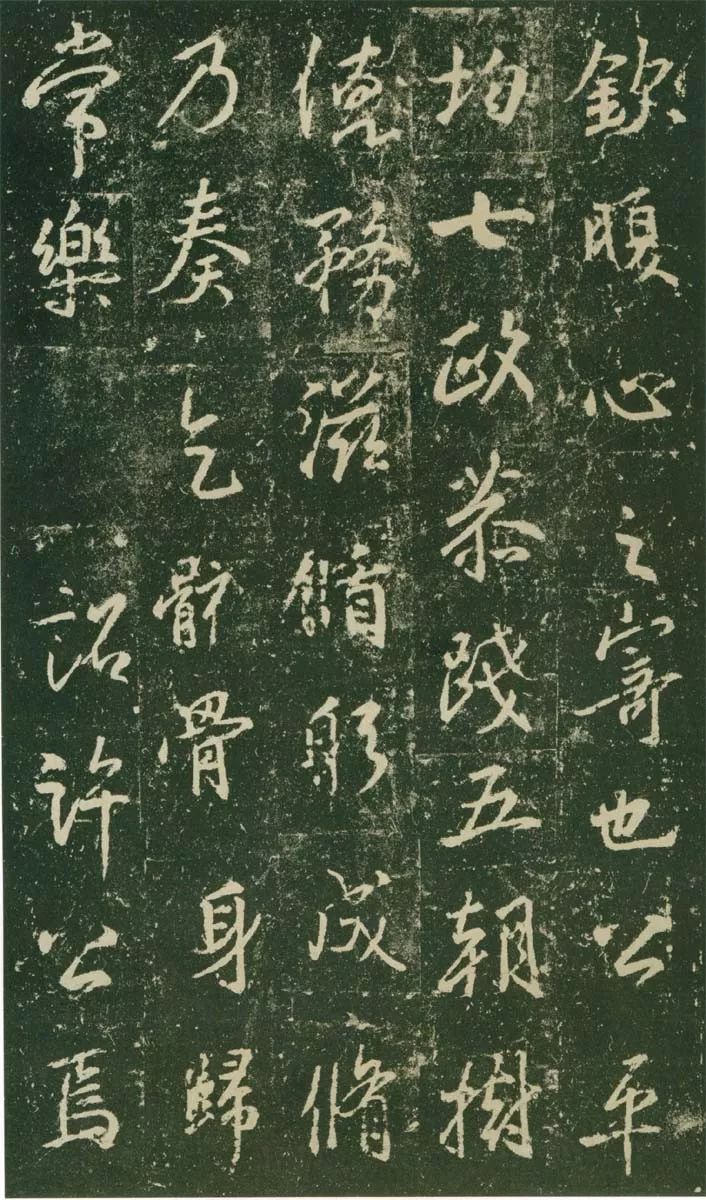 欽暇心之寄也公平
均七政恭踐五朝樹
德務滋躬咸脩
乃奏乞骸骨身歸
常樂 詔許公焉